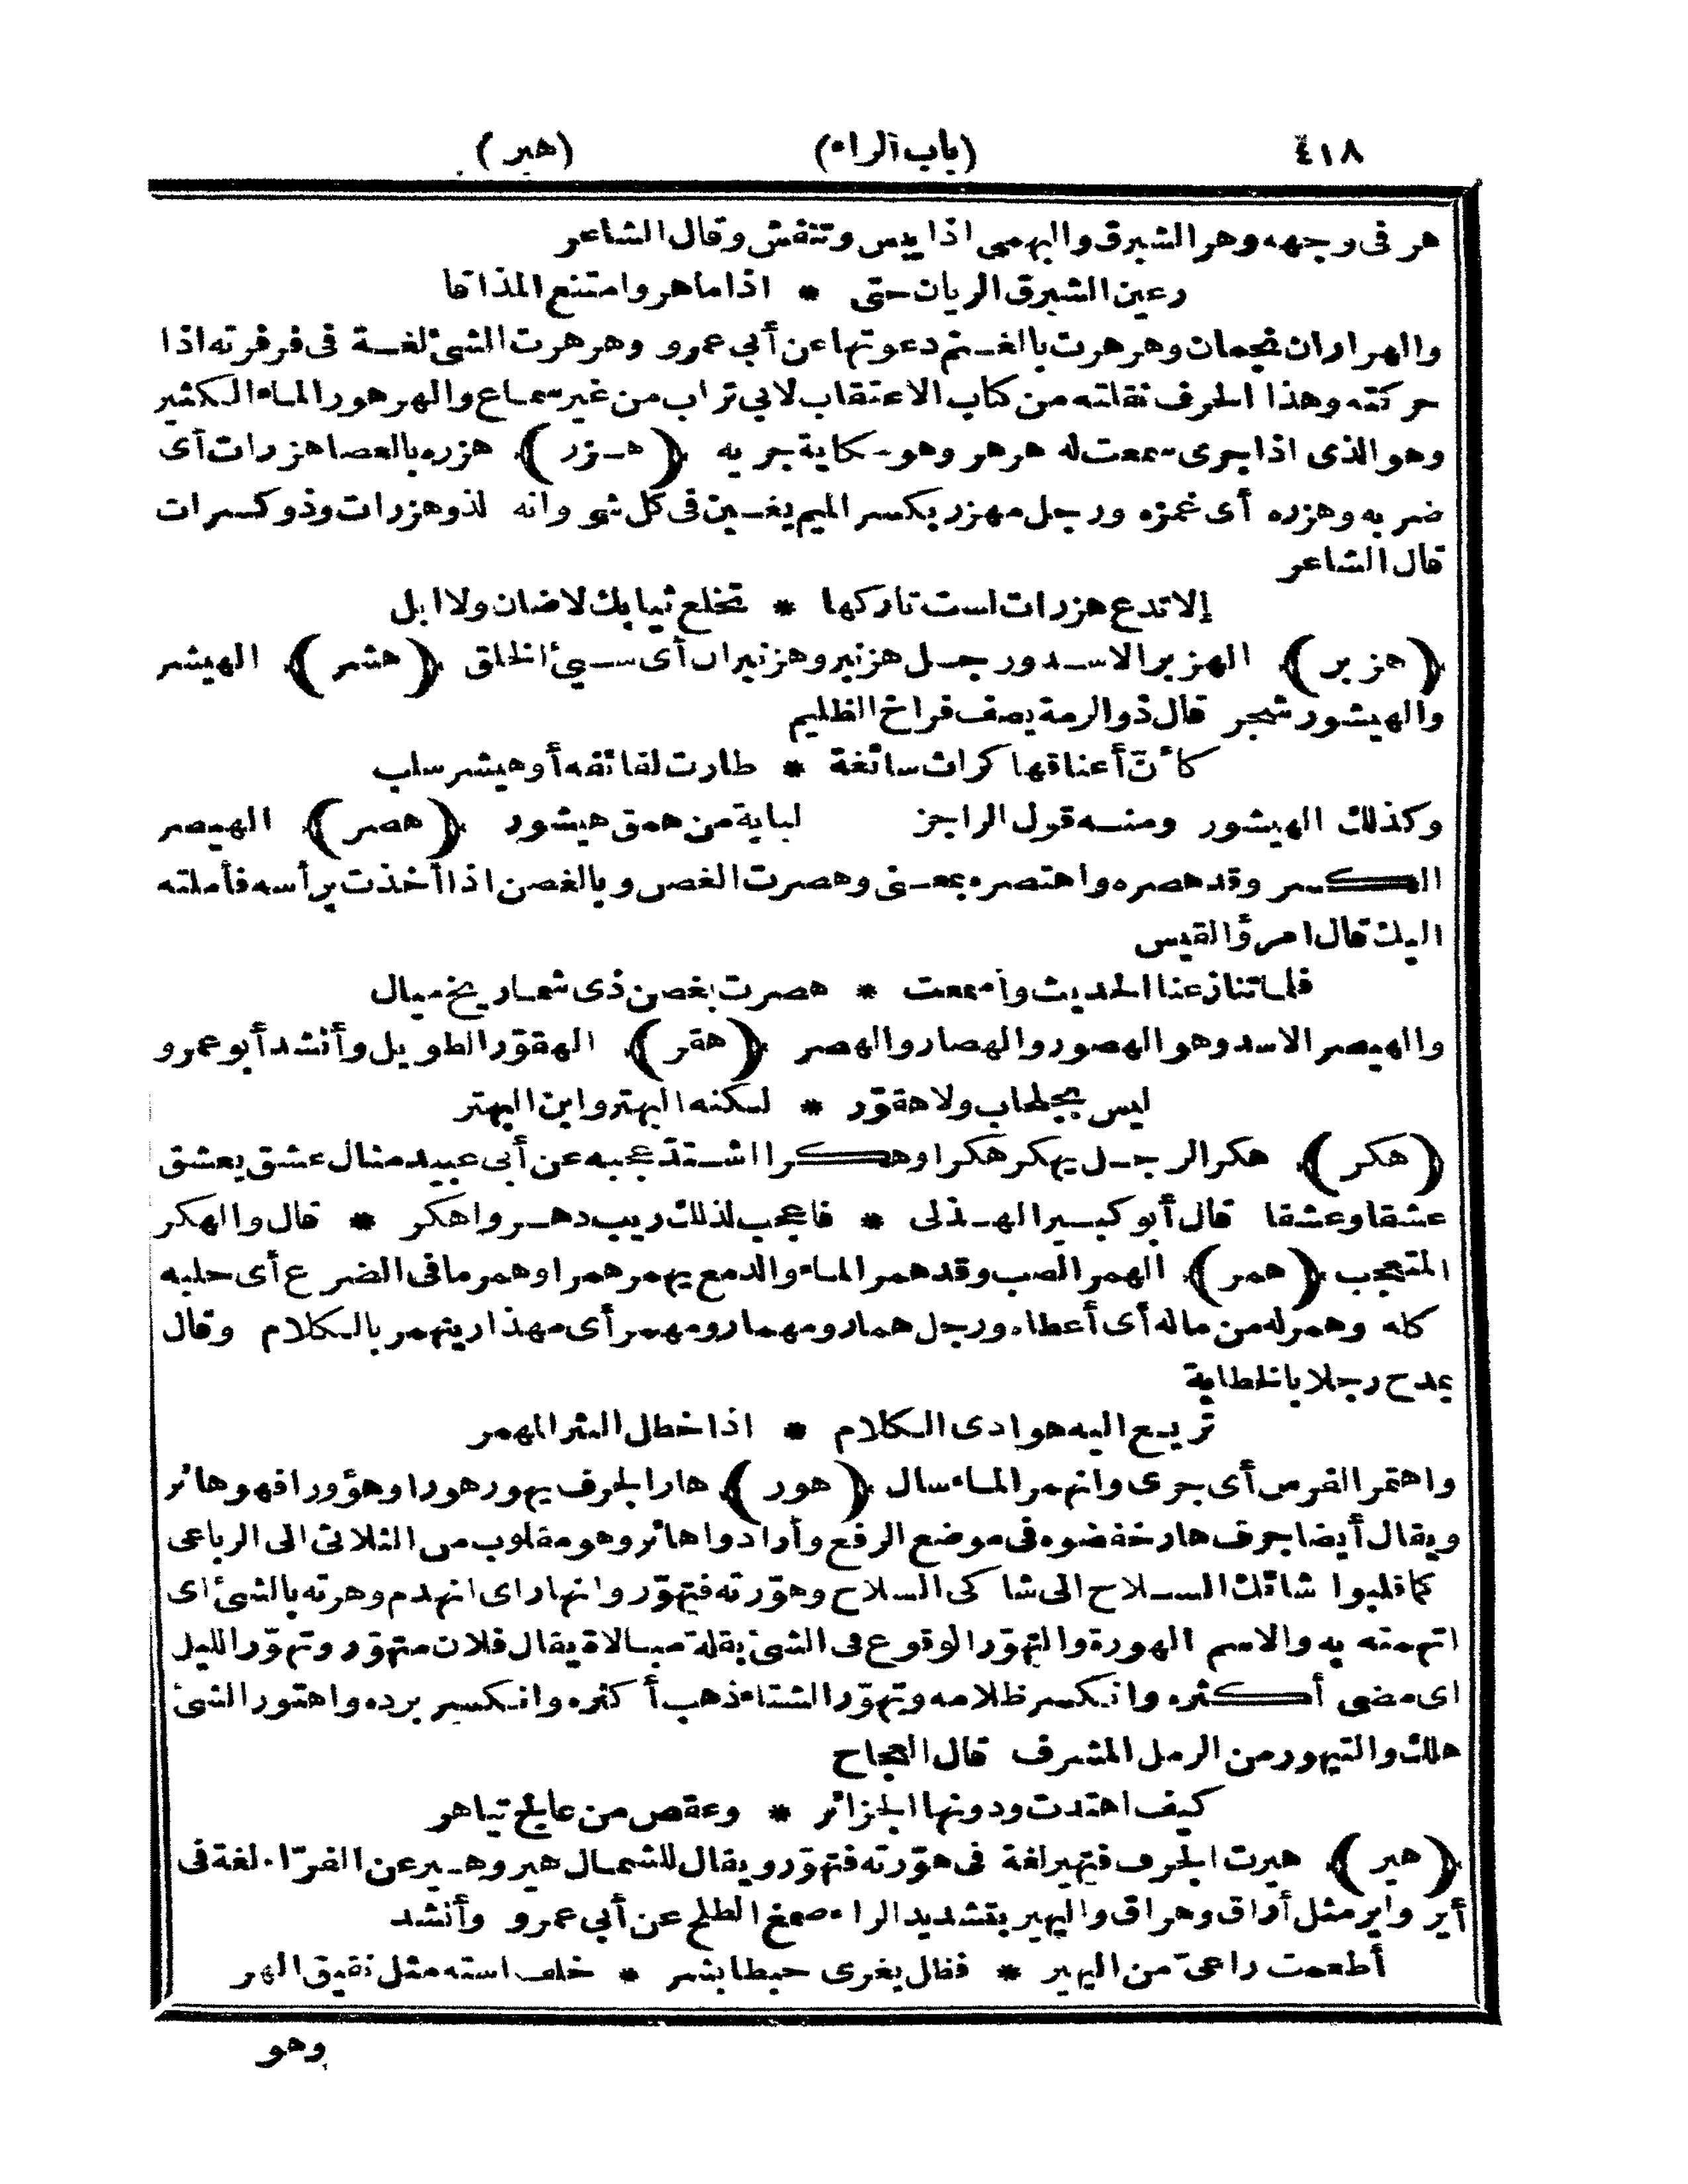 ٤١٨ (باب الراء) (هير)
هر فى وجهه وهر الشبرق والبهمى اذا يبس وتنفش وقال الشاعر
رعين الشبرق الريان حتى * اذا ما هر وامتنع المذاقا
والهراران نجمان وهرهرت بالغنم دعوتها عن أبى عمرو وهرهرت الشئ لغة فى فرفرته اذا
حركته وهذا الحرف نقلته من كتاب الاعتقاب لابى تراب من غير سماع والهرهور الماء الكثير
وهو الذى اذا جرى سمعت له هرهر وهو حكاية جريه ﴿هزر﴾ هزره بالعصا هزرات أى
ضربه وهزره أى غمزه ورجل مهزر بكسر الميم يغبن فى كل شئ وانه لذو هزرات وذو كسرات
قال الشاعر
إلا تدع هزرات لست تاركها * تخلع ثيابك لا ضان ولا ابل
﴿هزبر﴾ الهزبر الاسد ورجل هزنبر وهزنبران أى سيئ الخلق ﴿هشر﴾ الهيشر
والهيشور شجر قال ذو الرمة يصف فراخ الظليم
كأنّ أعناقها كراث سائغة * طارت لفائفه أو هيشر سلب
وكذلك الهيشور ومنه قول الراجز لباية من همق هيشور ﴿هصر﴾ الهيصر
الكسر وقد هصره واهتصره بمعنى وهصرت الغصن وبالغصن اذا أخذت برأسه فأملته
اليك قال امرؤ القيس
فلما تنازعنا الحديث وأسمحت * هصرت بغصن ذى شماريخ ميال
والهيصر الاسد وهو الهصور والهصار والهصر ﴿هقر﴾ الهقوّر الطويل وأنشد أبو عمرو
ليس بجلحاب ولا هقوّر * لكنه البهتر وابن البهتر
﴿هكر﴾ هكر الرجل يهكر هكرا وهكرا اشتدّ عجبه عن أبى عبيد مثال عشق يعشق
عشقا وعشقا قال أبو كبير الهذلى * فاعجب لذلك ريب دهر واهكر * قال والهكر
المتعجب ﴿همر﴾ الهمر الصب وقد همر الماء والدمع يهمر همرا وهمر ما فى الضرع أى حلبه
كله وهمر له من ماله أى أعطاه ورجل همار ومهمار ومهمر أى مهذار ينهمر بالكلام وقال
يمدح رجلا بالخطابة
تريع اليه هوادى الكلام * اذا خطل النثر المهمر
واهتمر الفرس أى جرى وانهمر الماء سال ﴿هور﴾ هار الجرف يهور هورا وهؤورا فهو هائر
ويقال أيضا جرف هار خفضوه فى موضع الرفع وأرادوا هائر وهو مقلوب من الثلاثى الى الرباعى
كما قلبوا شائك السلاح الى شاكى السلاح وهوّرته فتهوّر وانهار اى انهدم وهرته بالشئ اى
اتهمته به والاسم الهورة والتهوّر الوقوع فى الشئ بقلة مبالاة يقال فلان متهوّر وتهوّر الليل
اى مضى أكثره وانكسر ظلامه وتهوّر الشتاء ذهب أكثره وانكسر برده واهتور الشئ
هلك والتيهور من الرمل المشرف قال العجاج
كيف اهتدت ودونها الجزائر * وعقص من عالج تياهر
﴿هير﴾ هيرت الجرف فتهير لغة فى هوّرته فتهوّر ويقال للشمال هير وهير عن الفرّاء لغة فى
أير واير مثل أراق وهراق واليهير بتشديد الراء صمغ الطلح عن أبى عمرو وأنشد
أطعمت راعىّ من اليهير * فظل يغرى حبطا بشر * خلف استه مثل نقيق الهر
وهو